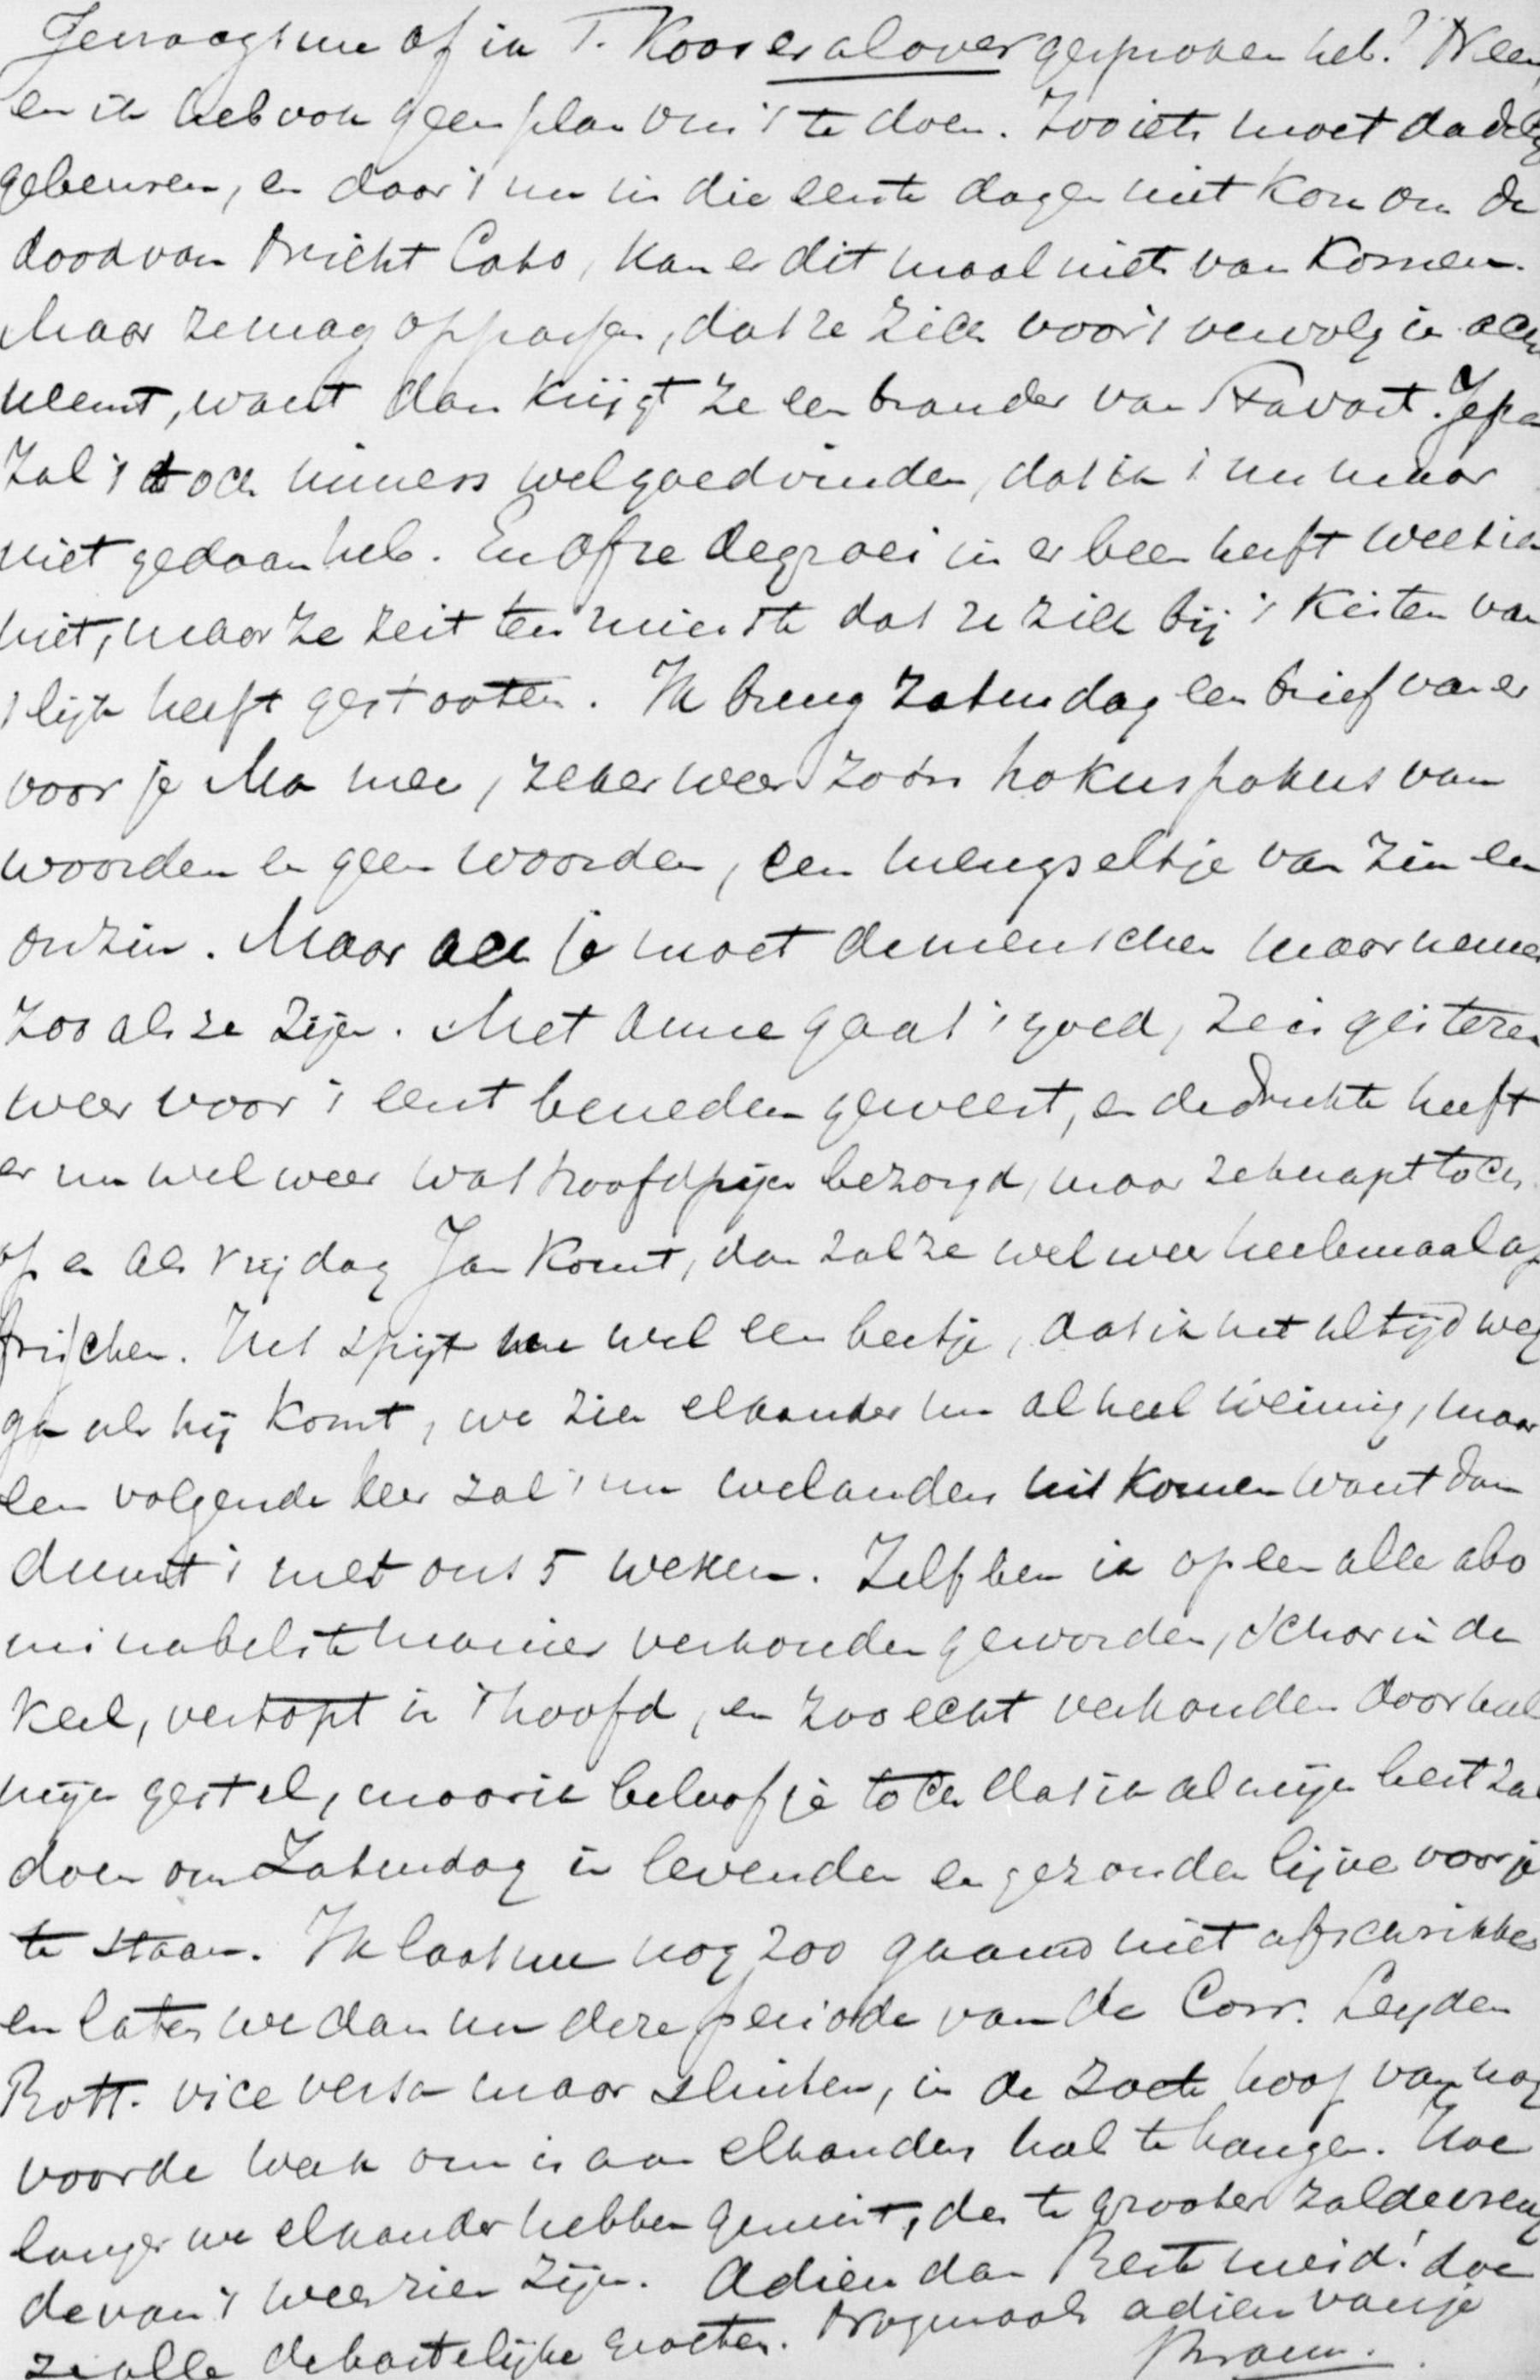 Je vraagt me of ik T. Koos er al over gesproken heb? Neen,
en ik heb ook geen plan om 't te doen. Zooiets moet dadelijk
gebeuren, en daar 't nu in die eerste dagen niet kon om de
dood van Nicht Cato, kan er ditmaal niets van komen.
Maar ze mag oppassen, dat ze zich voor 't vervolg in acht
neemt, want dan krijgt ze een brander van
zal 't toch immers wel goedvinden, dat ik 't nu maar
niet gedaan heb. En of ze de groei in er been heeft weet ik
niet, maar ze zeit ten minste dat ze zich bij 't kisten van
't lijk heeft gestooten. Ik breng Zaterdag een brief van er
voor je Ma mee, zeker weer zoo'n hokuspokus van
woorden en geen woorden, een mengseltje van zin en
onzin. Maar ach je moet de menschen maar nemen
zooals ze zijn. Met Anne gaat 't goed, ze is gisteren
weer voor 't eerst beneden geweest, en de drukte heeft
er nu wel weer wat hoofdpijn bezorgd, maar ze knapt toch
op en als Vrijdag Jan komt, dan zal ze wel weer heelemaal op
frisschen. Het spijt me wel een beetje, dat ik net altijd weg
ga als hij komt, we zien elkander nu al heel weinig, maar
een volgende keer zal 't nu wel anders uitkomen want dan
duurt 't met ons 5 weken. Zelf ben ik op een aller abo
minabelste manier verkouden geworden, schor in de
keel, verstopt in 't hoofd, en zoo echt verkouden door heel
mijn gestel, maar ik beloof je toch dat ik al mijn best zal
doen om Zaterdag in levenden en gezonden lijve voor je
te staan. Ik laat me nog zoo gaauw niet afschrikken
en laten we dan nu deze periode van de Corr. Leyden
Rott. vice versa maar sluiten, in de zoete hoop van nog
voor de week om is aan elkanders hals te hangen. Hoe
langer we elkander hebben gemist, des te grooter zal de vreug
de van 't weerzien zijn. Adieu dan Beste meid! doe
ze alle de hartelijke groeten. Nogmaals adieu van je
Bram.